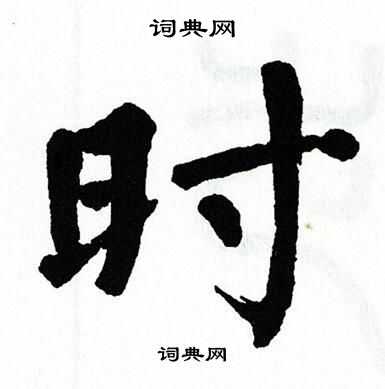 词典网
时
词典网